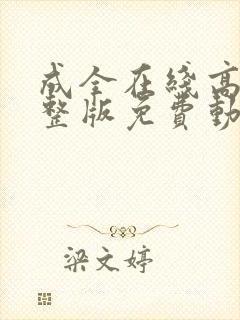 成全在线高
整版免費動
梁文婷